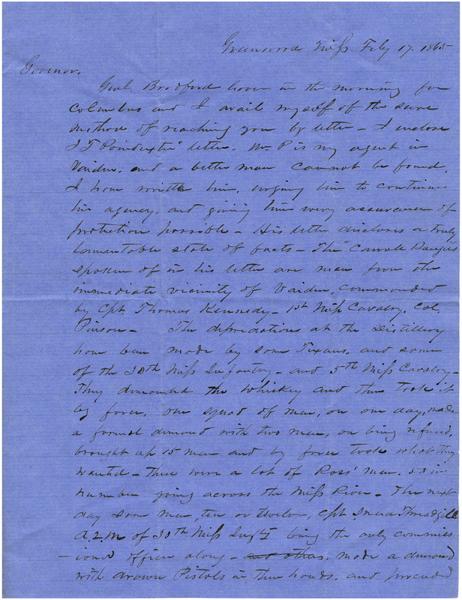 Greenwood Miss Feby 17. 1865
Governor,
Genl Bradford leaves in the morning for
Columbus and I avail myself of the same
method of reaching you by letter – I enclose
J T Poindexter' letter. Mr P is my agent in
Vaiden, and a better man cannot be found.
I have written him, urging him to continue
his agency, and giving him every assurance of
protection possible – His letter discloses a truly
lamentable state of facts – The "Carroll Rangers
spoken of in his letter are men from the
immediate vicinity of Vaiden, commanded
by Cpt Thomas Kennedy – 1st Miss Cavalry. Col.
Pinson – The depredations at the Distillery
have been made by some Texans, and some
of the 30th Miss Infantry – and 5th Miss Cavalry –
They demanded the Whiskey and then took it
by force. One squad of men, on one day, made
a formal demand with two men, on being refused,
brought up 15 men and by force took what they
wanted – These were a lot of Ross' men.
number going across the Miss River – The next
day some men, ten or twelve, Cpt
A Q M of 30th Miss Infty being the only commis
– ioned officer along – made a demand
with drawn Pistols in their hands. and proceeded